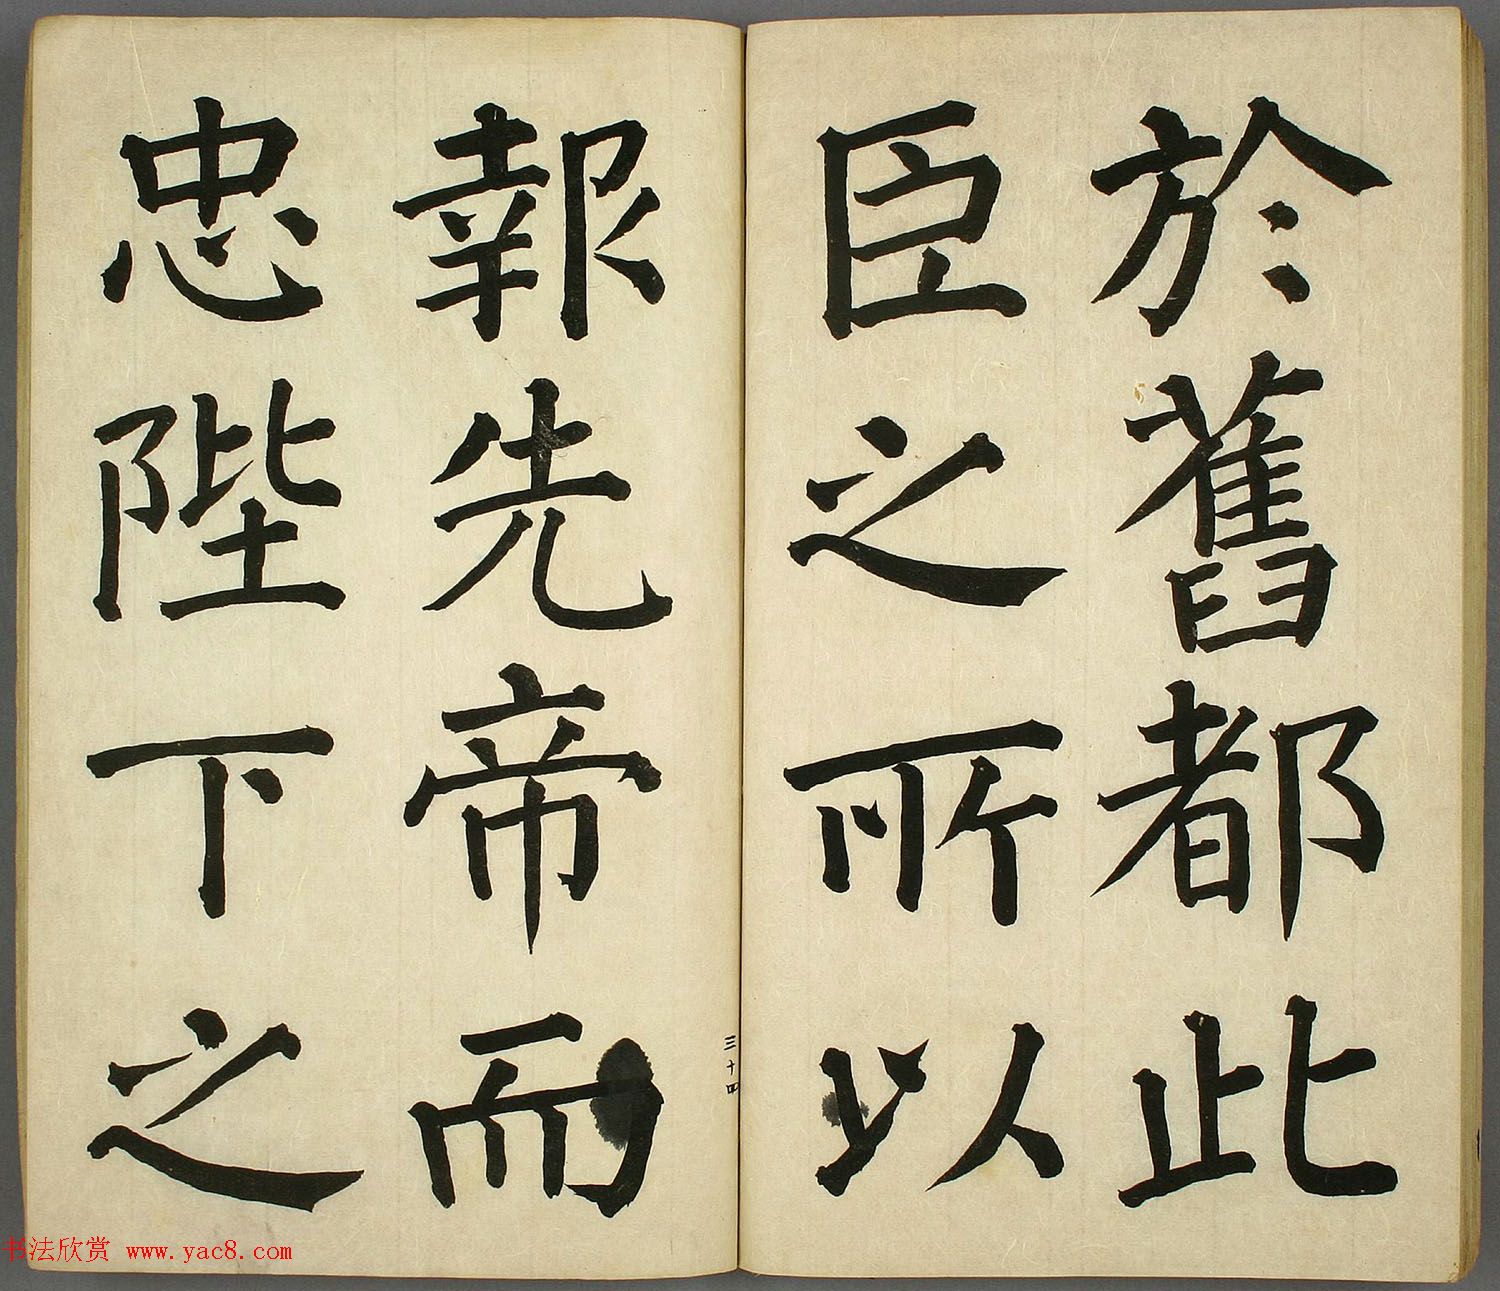 於舊都此
臣之所以
報先帝而
忠陛下之
三十四
书法欣赏 www.yac8.com